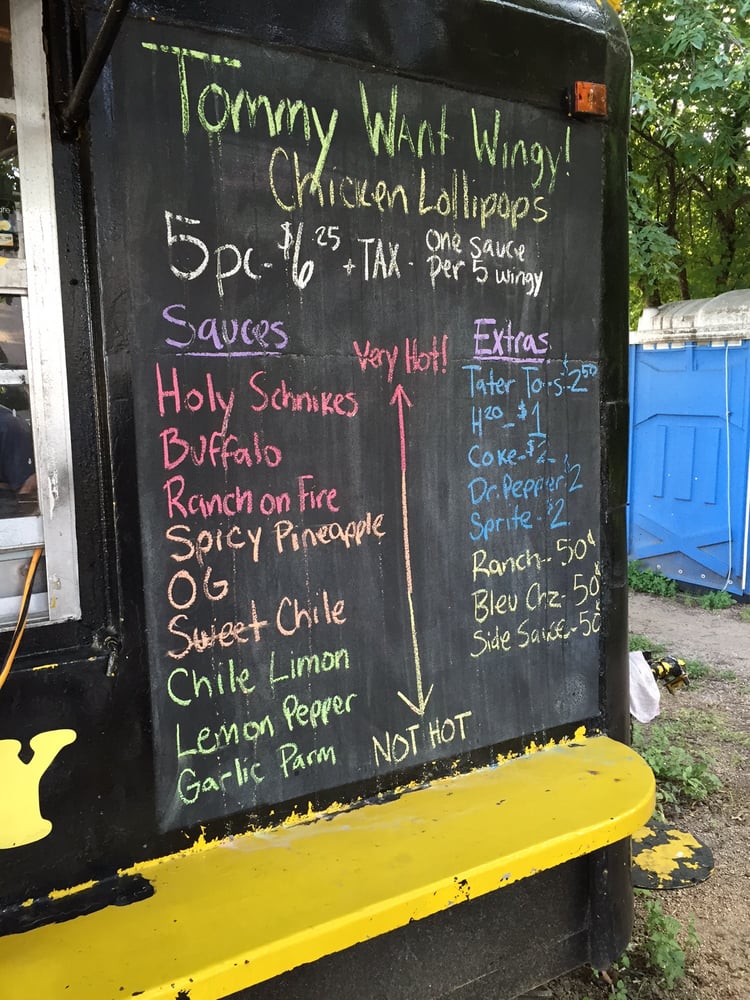 Tommy Want Wingy!
Chicken Lollipops
5pc - $6.25 + TAX - One sauce per 5 wingy
Sauces
Very Hot!
Holy Schnikes
Buffalo
Ranch on Fire
Spicy Pineapple
OG
Sweet Chile
Chile Limon
Lemon Pepper
Garlic Parm
NOT HOT
Extras
Tater Tots - $2.50
H20 - $1
Coke - $2
Dr. Pepper $2
Sprite - $2
Ranch - 50¢
Bleu Chz - 50¢
Side Sauce - 50¢
Y